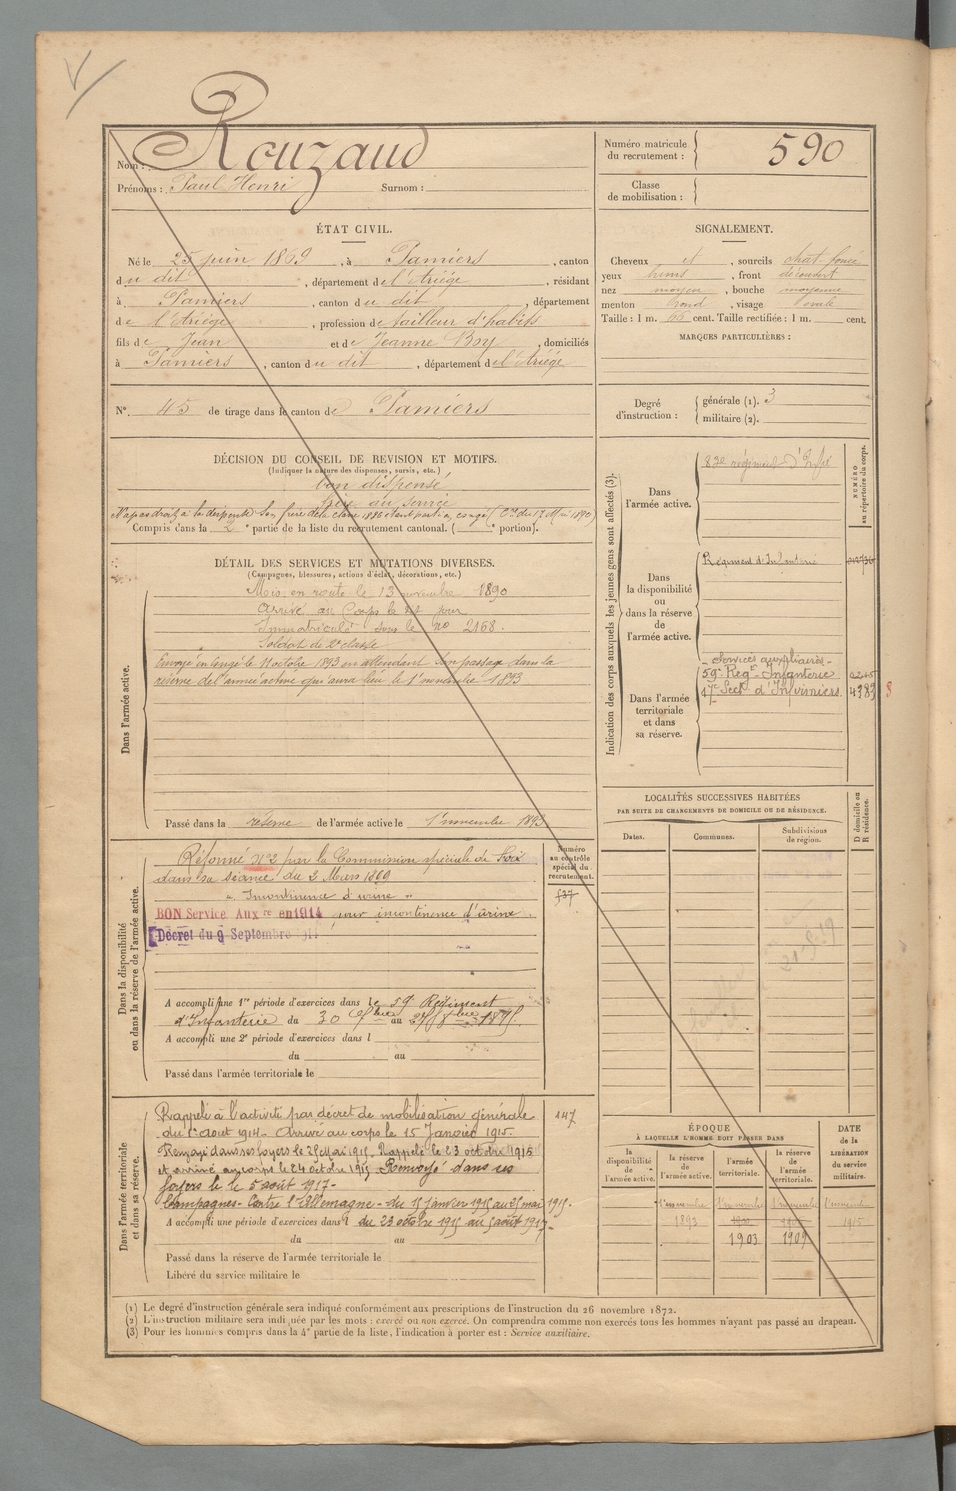 Nom : Rouzaud
Prénoms : Paul Henri Surnom :
Numéro matricule du recrutement : 590
Classe de mobilisation :
ÉTAT CIVIL.
Né le 25 juin 1869, à Pamiers, canton
du dit, département de l'Ariège, résidant
à Pamiers, canton du dit, département
de l'Ariège, profession de tailleur d'habits
fils de Jean et de Jeanne Boy, domiciliés
à Pamiers, canton du dit, département de l'Ariège
SIGNALEMENT.
Cheveux et, sourcils chat. foncé
yeux, front découvert
nez moyen, bouche moyenne
menton rond, visage ovale
Taille : 1 m. 66 cent. Taille rectifiée : 1 m. cent.
MARQUES PARTICULIÈRES :
N° 45 de tirage dans le canton de Pamiers
Degré d'instruction : générale (1). 3
militaire (2).
DÉCISION DU CONSEIL DE REVISION ET MOTIFS.
(Indiquer la nature des dispenses, sursis, etc.)
bon dispensé
au service
N'a pas droit à la dispense son frère de la classe
Compris dans la 2e partie de la liste du recrutement cantonal. ( e portion).
DÉTAIL DES SERVICES ET MUTATIONS DIVERSES.
(Campagnes, blessures, actions d'éclat, décorations, etc.)
Dans l'armée active.
Mis en route le 13 novembre 1890
Arrivé au Corps le dit jour
Immatriculé sous le no 2168.
Soldat de 2e classe
Envoyé en congé le 11 octobre 1893 en attendant son passage dans la
réserve de l'armée active qui aura lieu le 1er novembre 1893
Passé dans la réserve de l'armée active le 1er novembre 1893
Indication des corps auxquels les jeunes gens sont affectés (3).
NUMÉRO au répertoire du corps.
Dans l'armée active.
83e régiment d'Infie
Dans la disponibilité ou dans la réserve de l'armée active.
Régiment d'Infanterie
Dans l'armée territoriale et dans sa réserve.
Services auxiliaires
59e Regt Infanterie
17e Sect. d'Infirmiers 4383
LOCALITÉS SUCCESSIVES HABITÉES
PAR SUITE DE CHANGEMENTS DE DOMICILE OU DE RÉSIDENCE.
Dates. Communes. Subdivisions de région.
D domicile ou R résidence.
Dans la disponibilité ou dans la réserve de l'armée active.
Numéro au contrôle spécial du recrutement.
Réformé n°2 par la Commission spéciale de Foix
dans sa séance du 2 Mars
Incontinence d'urine
BON Service Auxre en 1914 pour incontinence d'urine.
Décret du 9 Septembre
A accompli une 1re période d'exercices dans le 59e Régiment
d'Infanterie du 30 au
A accompli une 2e période d'exercices dans l
du au
Passé dans l'armée territoriale le
Dans l'armée territoriale et dans sa réserve.
147
Rappelé à l'activité par décret de mobilisation générale
du 1er août 1914. Arrivé au corps le 15 Janvier 1915.
Renvoyé dans ses foyers le 25 Mai 1915. Rappelé le 23 octobre 1915
et arrivé au corps le 24 octobre 1915 Renvoyé dans ses
foyers le le 5 août 1917-
Campagnes- Contre l'Allemagne- du 15 janvier 1915 au 25 mai 1915.
A accompli une période d'exercices dans l du 23 octobre 1915 au 5 août 1917-
du au
Passé dans la réserve de l'armée territoriale le
Libéré du service militaire le
ÉPOQUE
À LAQUELLE L'HOMME DOIT PASSER DANS
la disponibilité de l'armée active.
la réserve de l'armée active.
l'armée territoriale.
la réserve de l'armée territoriale.
DATE de la LIBÉRATION du service militaire.
1er novembre 1893
1er novembre 1903
1er novembre 1909
1er novembre 1915
(1) Le degré d'instruction générale sera indiqué conformément aux prescriptions de l'instruction du 26 novembre 1872.
(2) L'instruction militaire sera indiquée par les mots : exercé ou non exercé. On comprendra comme non exercés tous les hommes n'ayant pas passé au drapeau.
(3) Pour les hommes compris dans la 4e partie de la liste, l'indication à porter est : Service auxiliaire.